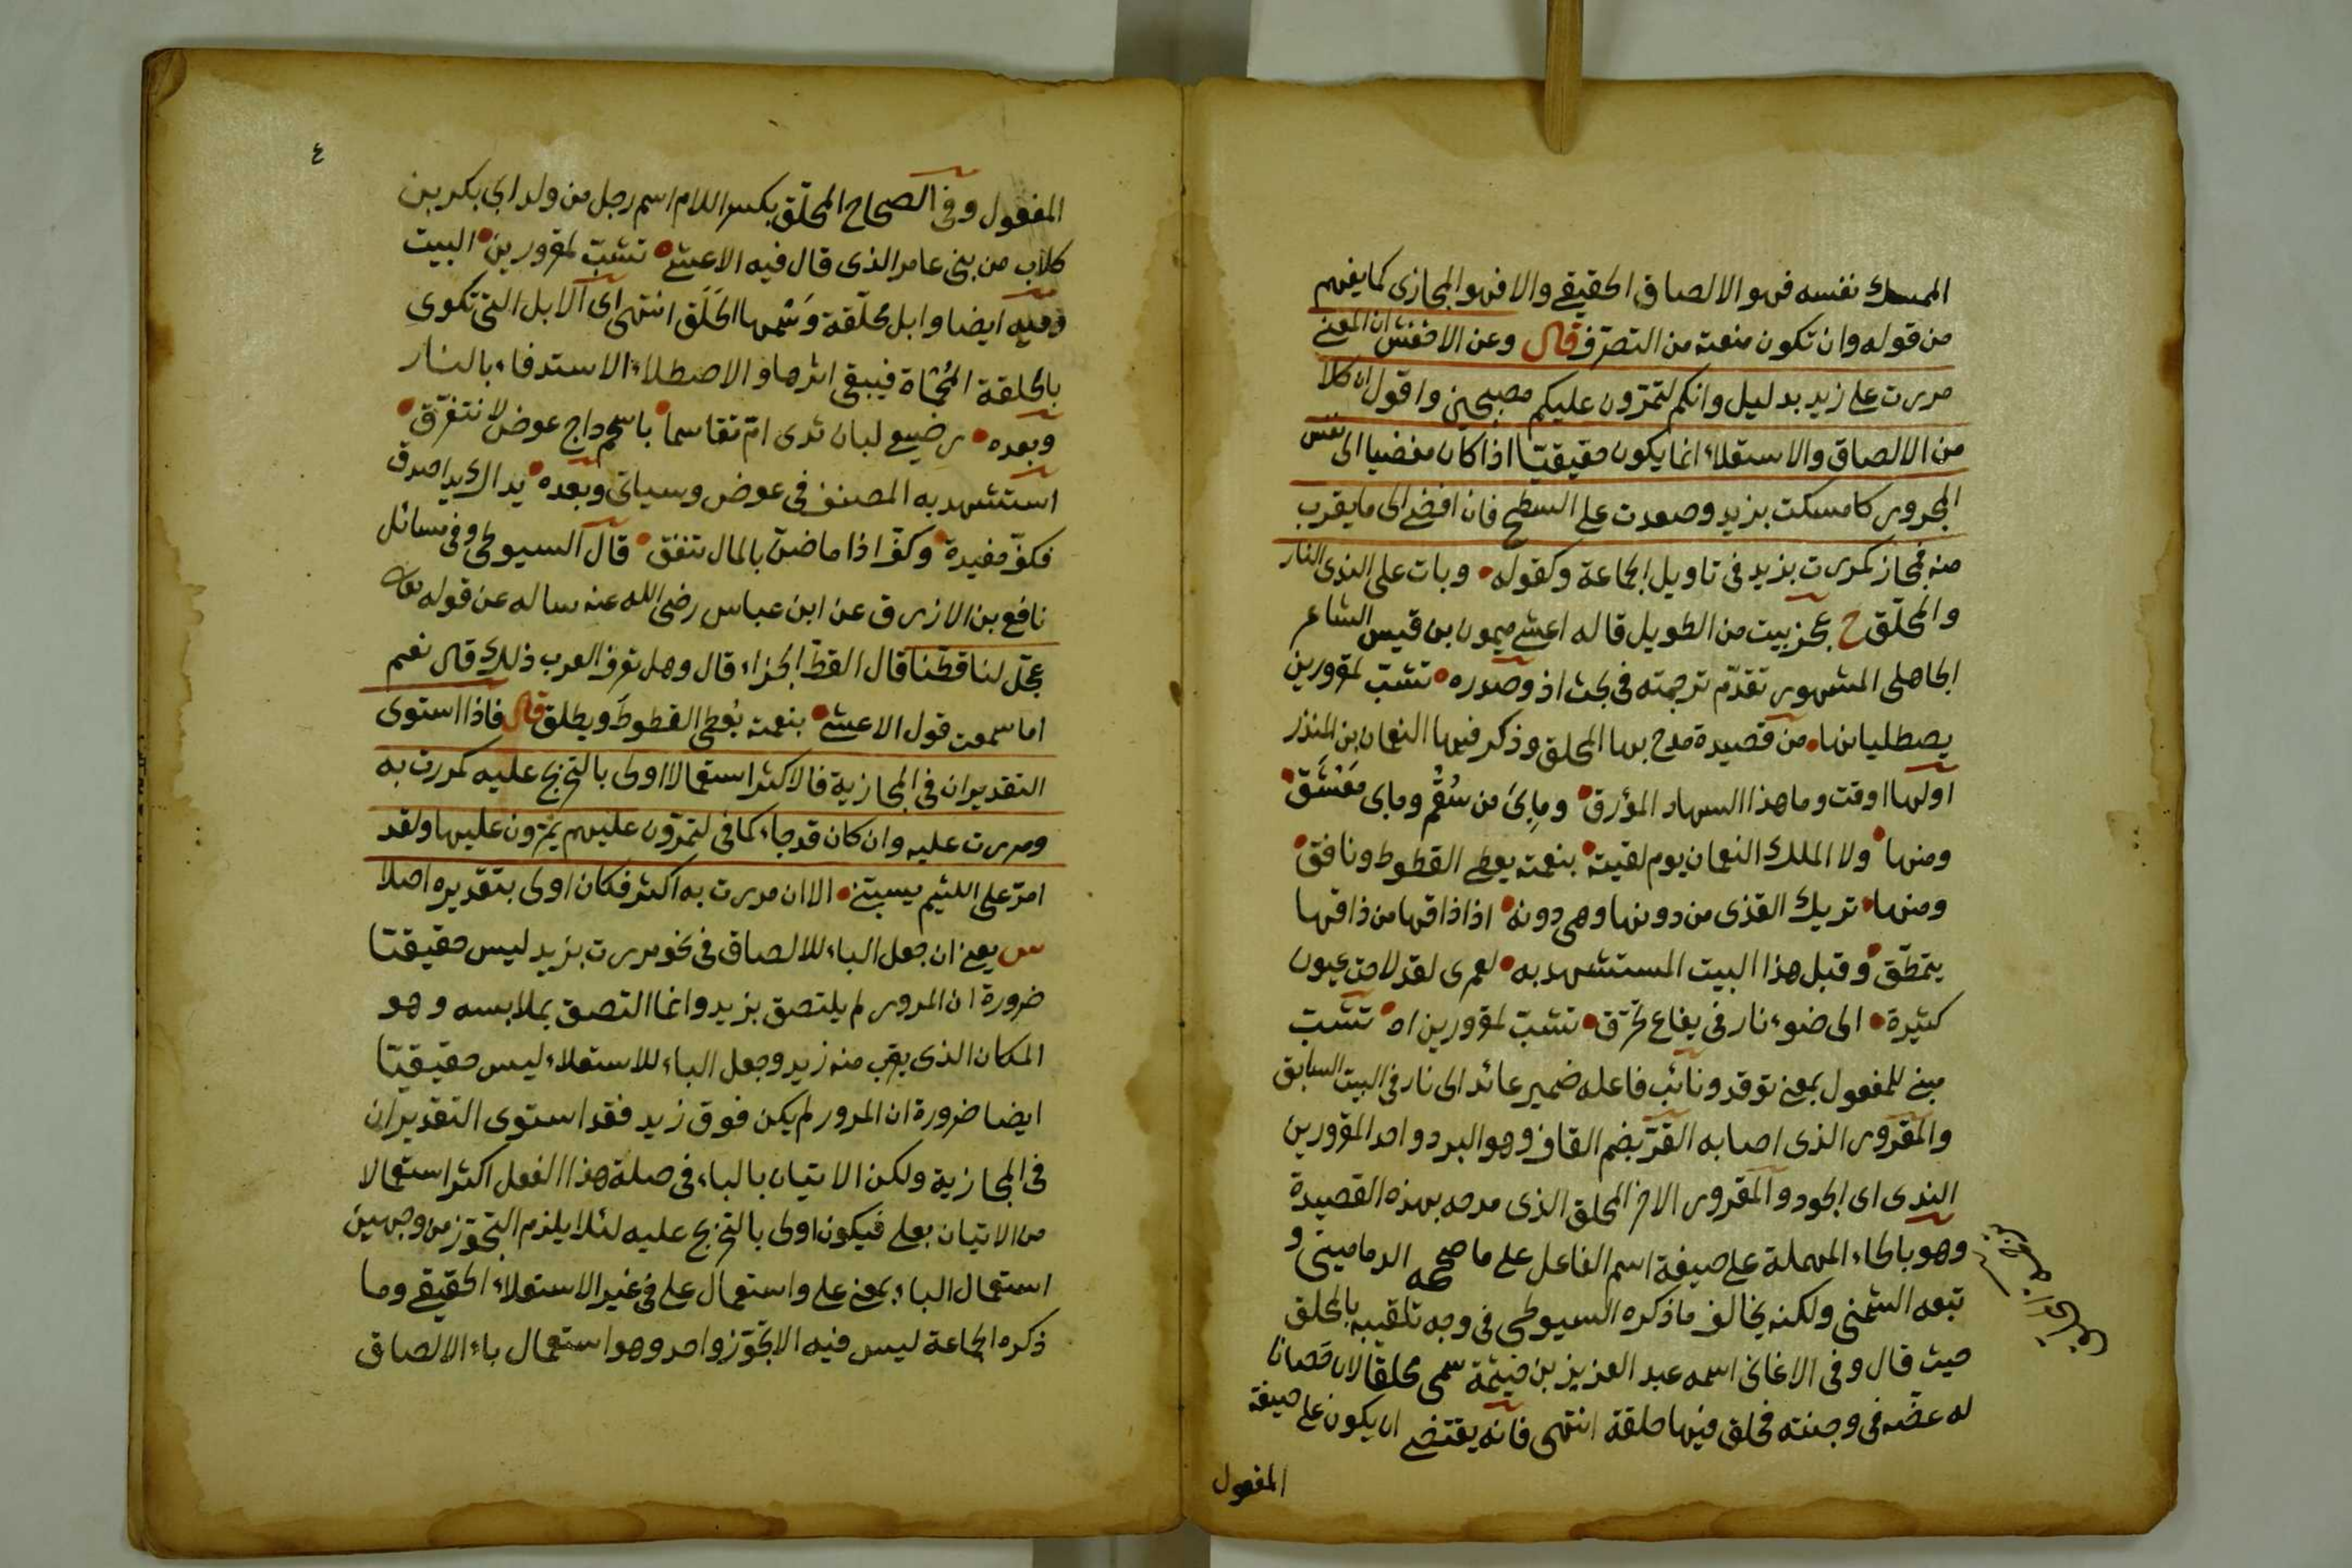 الممسك نفسه فهو الالصاق الحقيقي والا فهو المجازى كما يفهم
من قوله وان تكون منعته من التصرف قال وعن الاخفش ان المعنى
مررت على زيد بدليل وانكم لتمرّون عليكم مصبحين واقول ان كلا
من الالصاق والاستعلاء انما يكون حقيقيّا اذا كان مفضيا الى نفس
المجرور كامسكت بزيد وصعدت على السطح فان افضى الى ما يقرب
منه فمجاز كمررت بزيد فى تاويل الجماعة وكقوله • وبات على الندى النار
والمحلّق ح عجز بيت من الطويل قاله اعشى ميمون بن قيس الشاعر
الجاهلى المشهور تقدّم ترجمته فى بحث اذ وصدره • تشبّ لمقرورين
يصطليانها • من قصيدة مدح بها المحلق وذكر فيها النعمان بن المنذر
اولها ارقت وما هذا السهاد المؤرق • وما بى من سُقْم وما بى مَعْشَق •
ومنها • ولا الملك النعمان يوم لقيته • بنعمته يعطى القطوط ونافق •
ومنها • تريك القذى من دونها وهى دونه • اذا ذاقها من ذاقها
يتمطّق • وقبل هذا البيت المستشهد به • لعمرى لقد لاحت عيون
كثيرة • الى ضوء نار فى يفاع تحرّق • تشبّ لمقرورين اه • تشبّ
مبنى للمفعول بمعنى توقد ونائب فاعله ضمير عائد الى نار فى البيت السابق
والمقرور الذى اصابه القرّ بضم القاف وهو البرد واحد المقرورين
الندى اى الجود والمقرور الاخر المحلق الذى مدحه بهذه القصيدة
وهو بالحاء المهملة على صيغة اسم الفاعل على ما صححه الدمامينى و
تبعه الشمنى ولكنه يخالف ما ذكره السيوطى فى وجه تلقيبه بالمحلق
حيث قال وفى الاغانى اسمه عبد العزيز بن خيثمة سمى محلقا لان حصانا
له عضّه فى وجنته فحلق فيها حلقة انتهى فانه يقتضى ان يكون على صيغة
المفعول
٤
المفعول وفى الصحاح المحلّق بكسر اللام اسم رجل من ولد ابى بكر بن
كلاب من بنى عامر الذى قال فيه الاعشى • تشبّ لمقرورين • البيت
وفيه ايضا وابل محلّقة وَسْمها الحَلَق انتهى اى الابل التى تكوى
بالحلقة المُحْمَاة فيبقى اثرها والاصطلاء الاستدفاء بالنار
وبعده • رضيع لبان ثدى امّ تقاسما • باسحم داج عوض لا نتفرّق •
استشهد به المصنف فى عوض وسياتى وبعده • يداك يدا صدق
فكفّ مفيدة • وكفّ اذا ما ضنّ بالمال تنفق • قال السيوطى وفى مسائل
نافع بن الازرق عن ابن عباس رضى الله عنه ساله عن قوله تعالى
عجّل لنا قطّنا قال القطّ الجزاء قال وهل تعرف العرب ذلك قال نعم
اما سمعت قول الاعشى • بنعمته يُعطى القطوط ويطلق قال فاذا استوى
التقديران فى المجازية فالاكثر استعمالا اولى بالتخريج عليه كمررت به
ومررت عليه وان كان قد جاء كما فى لتمرّون عليهم يمرّون عليها ولقد
امرّ على اللئيم يسبّنى • الا ان مررت به اكثر فكان اولى بتقديره اصلا
س يعنى ان جعل الباء للالصاق فى نحو مررت بزيد ليس حقيقيّا
ضرورة ان المرور لم يلتصق بزيد وانما التصق بملابسه وهو
المكان الذى يقرب منه زيد وجعل الباء للاستعلاء ليس حقيقيّا
ايضا ضرورة ان المرور لم يكن فوق زيد فقد استوى التقديران
فى المجازية ولكن الاتيان بالباء فى صلة هذا الفعل اكثر استعمالا
من الاتيان بعلى فيكون اولى بالتخريج عليه لئلا يلزم التجوّز من وجهين
استعمال الباء بمعنى على واستعمال على فى غير الاستعلاء الحقيقى وما
ذكره الجماعة ليس فيه الا تجوّز واحد وهو استعمال باء الالصاق